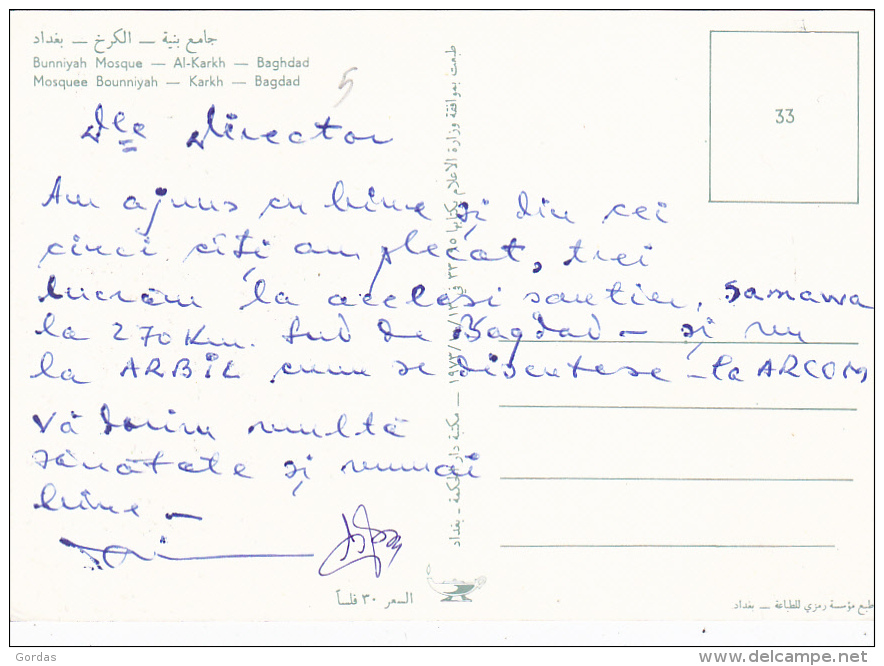 جامع بنية — الكرخ — بغداد
Bunniyah Mosque — Al-Karkh — Baghdad
Mosquee Bounniyah — Karkh — Bagdad
5
33
Dle Director
Am ajuns cu bine și din cei
cinci cîți am plecat, trei
lucrăm la același șantier, Samawa
la 270 Km. Sud de Bagdad – și un
la ARBIL cum se discutase – la ARCOM
Vă dorim multă
sănătate și numai
bine –
طبعت بموافقة وزارة الاعلام بكتابها
١٩٧٣ — مكتبة دار الحكمة - بغداد
السعر ٣٠ فلساً
طبع مؤسسة رمزي للطباعة — بغداد
Gordas
www.delcampe.net